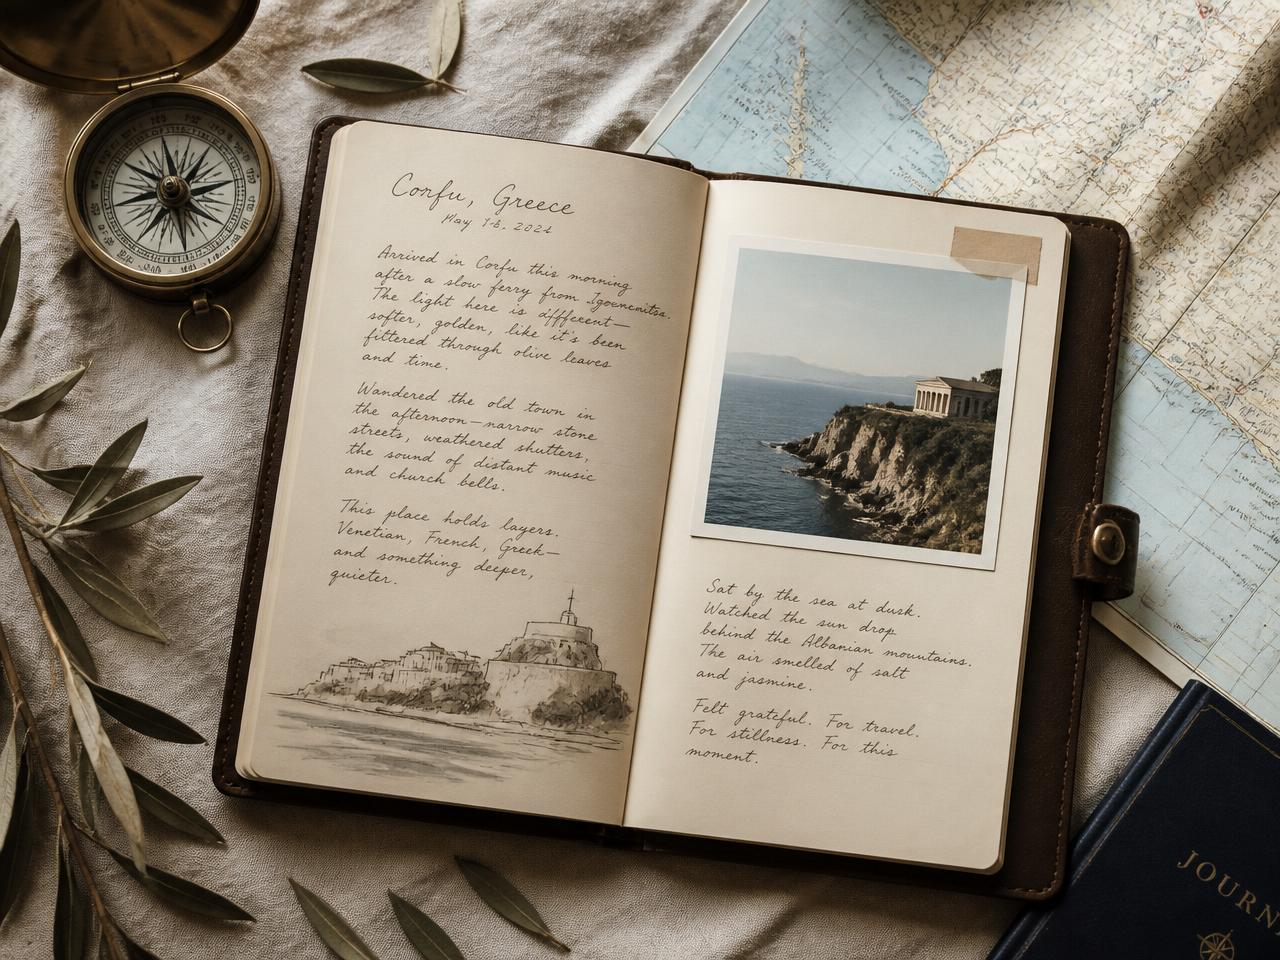 Corfu, Greece
May 2024
Arrived in Corfu this morning
after a slow ferry from Igoenemitsa.
The light here is dffferent—
softer, golden, like it's been
fittered through olive leaves
and time.
Wandered the old town in
the afternoon—narrow stone
streets, weathered shutters,
the sound of distant music
and church bells.
This place holds layers.
Venetian, French, Greek—
and something deeper,
quieter.
Sat by the sea at dusk.
Watched the sun drop
behind the Albanian mountains.
The air smelled of salt
and jasmine.
Felt grateful. For travel.
For stillness. For this
moment.
JOURN